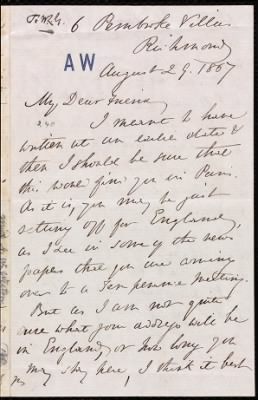 6 Pembroke Villas
Richmond
AW
August 29. 1867
My Dear friend
I meant to have
written at an earlier date &
then I should be sure that
this would find you in Paris.
As it is you may be just
setting off for England,
as I see in some of the news
papers that you are coming
over to a Temperance meeting.
But as I am not quite
sure what your address will be
in England, or how long you
may stay here, I think it best